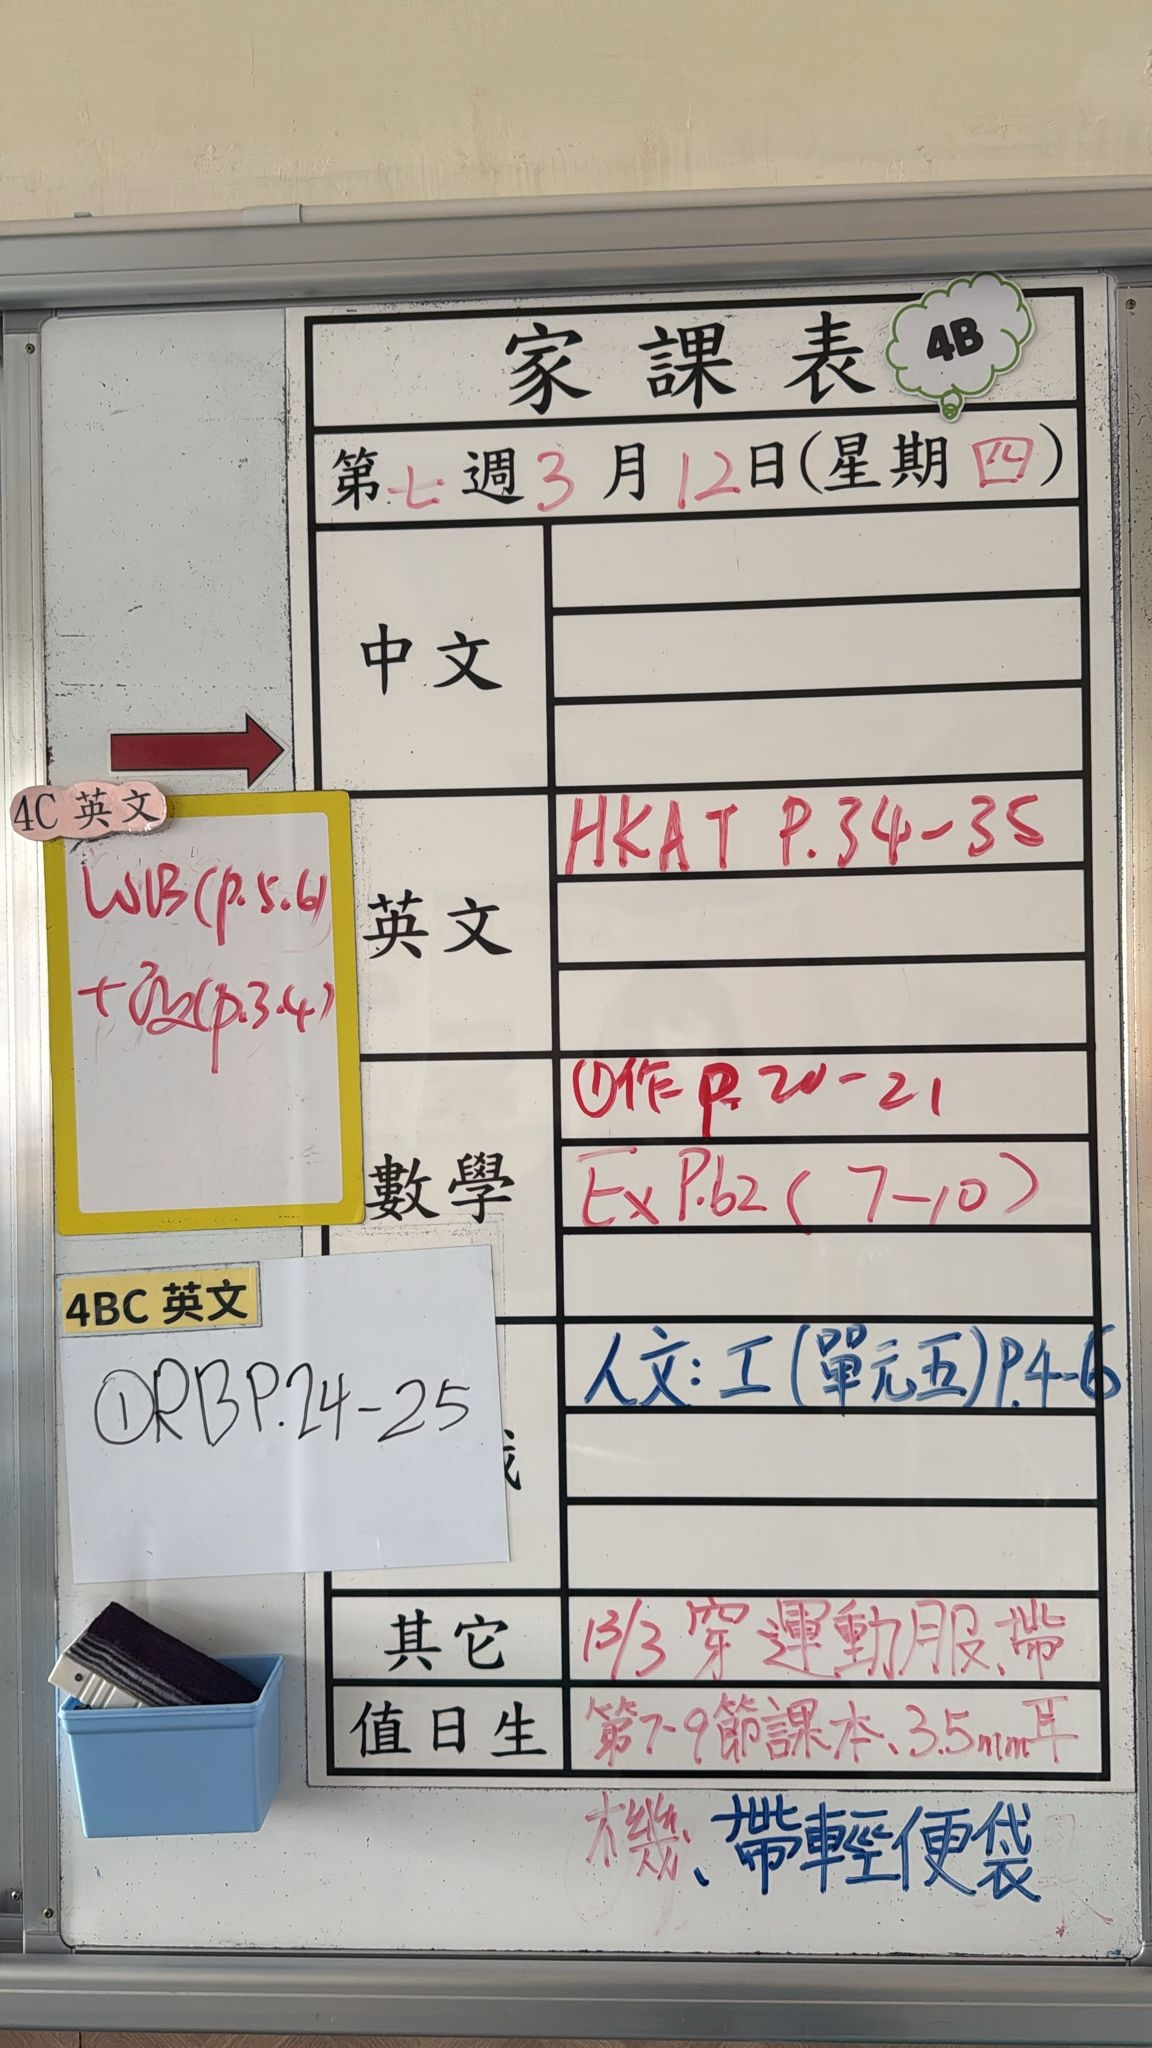 家課表
4B
第七週3月12日(星期四)
中文
4C 英文
WB(p.5.6)
+ (p.3.4)
英文
HKAT P.34-35
數學
①作 p.20-21
Ex P.62 ( 7-10 )
4BC 英文
①RB P.24-25
人文: 工 (單元五) P.4-6
其它
13/3 穿運動服、帶
值日生
第7-9節課本、3.5mm耳
機、帶輕便袋